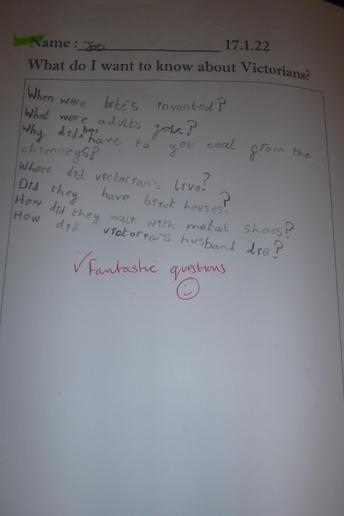 Name : Jac 17.1.22
What do I want to know about Victorians?
When were brke's invonted?
What were adults jobe?
Why did Boys have to get coal from the
chimneys?
Where did victorian's live?
Did they have brick houses?
How did they walk with metal shoes?
How did victoria's husband die?
✓ Fantastic questions